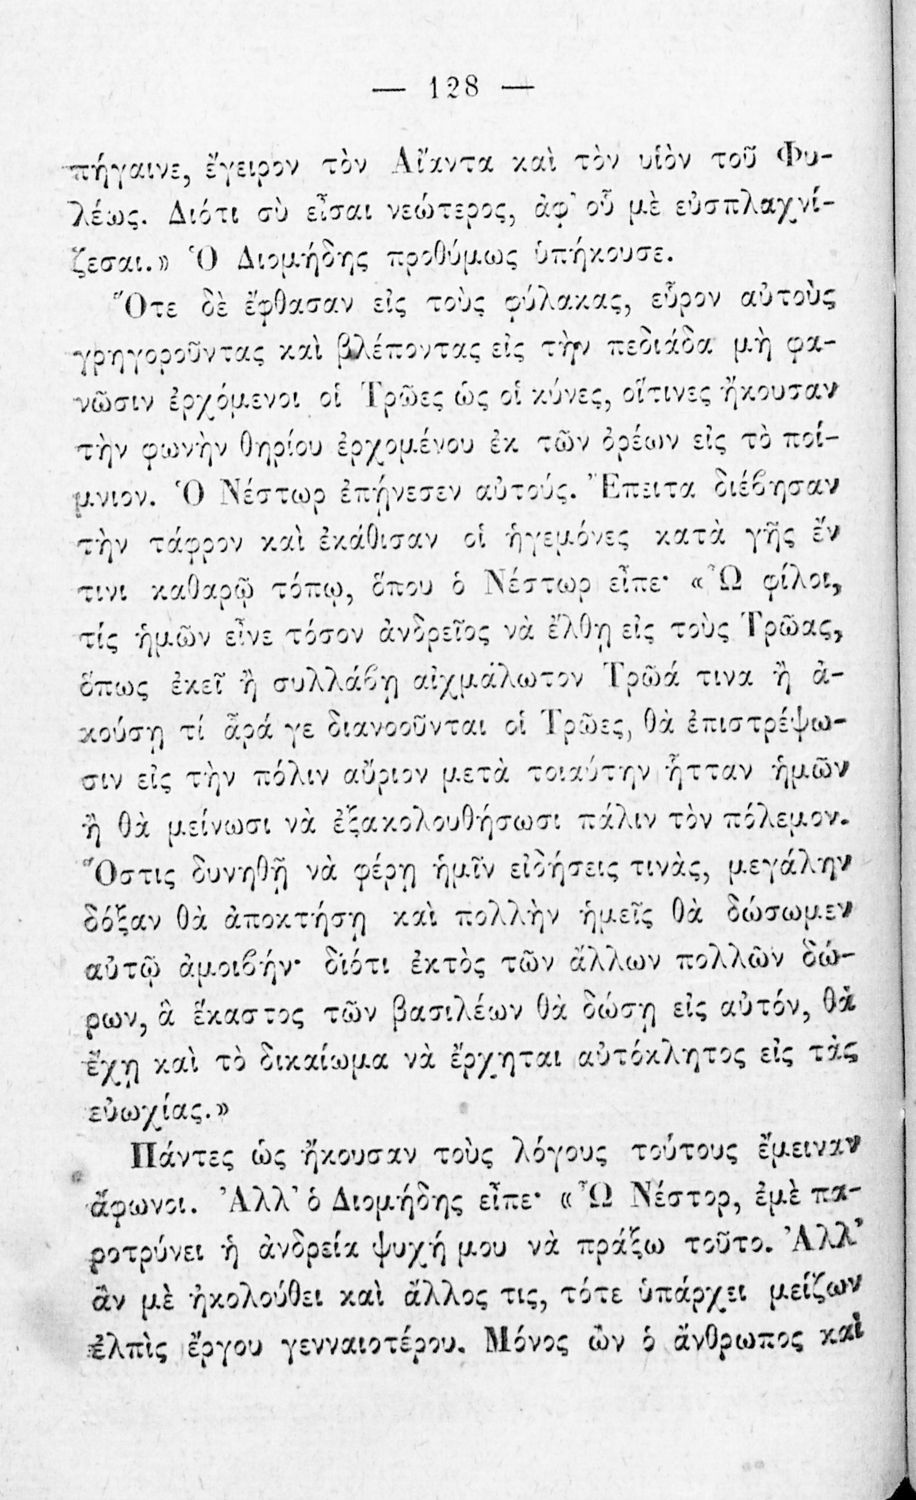 — 128 —
πήγαινε, ἔγειρον τὸν Αἴαντα καὶ τὸν υἱὸν τοῦ Φυ-
λέως. Διότι σὺ εἶσαι νεώτερος, ἀφ' οὗ μὲ εὐσπλαχνί-
ζεσαι.» Ὁ Διομήδης προθύμως ὑπήκουσε.
Ὅτε δὲ ἔφθασαν εἰς τοὺς φύλακας, εὗρον αὐτοὺς
γρηγοροῦντας καὶ βλέποντας εἰς τὴν πεδιάδα μὴ φα-
νῶσιν ἐρχόμενοι οἱ Τρῶες ὡς οἱ κύνες, οἵτινες ἤκουσαν
τὴν φωνὴν θηρίου ἐρχομένου ἐκ τῶν ὀρέων εἰς τὸ ποί-
μνιον. Ὁ Νέστωρ ἐπῄνεσεν αὐτούς. Ἔπειτα διέβησαν
τὴν τάφρον καὶ ἐκάθισαν οἱ ἡγεμόνες κατὰ γῆς ἔν
τινι καθαρῷ τόπῳ, ὅπου ὁ Νέστωρ εἶπε· «Ὦ φίλοι,
τίς ἡμῶν εἶνε τόσον ἀνδρεῖος νὰ ἔλθῃ εἰς τοὺς Τρῶας,
ὅπως ἐκεῖ ἢ συλλάβῃ αἰχμάλωτον Τρῶά τινα ἢ ἀ-
κούσῃ τί ἆρά γε διανοοῦνται οἱ Τρῶες, θὰ ἐπιστρέψω-
σιν εἰς τὴν πόλιν αὔριον μετὰ τοιαύτην ἧτταν ἡμῶν
ἢ θὰ μείνωσι νὰ ἐξακολουθήσωσι πάλιν τὸν πόλεμον.
Ὅστις δυνηθῇ νὰ φέρῃ ἡμῖν εἰδήσεις τινὰς, μεγάλην
δόξαν θὰ ἀποκτήσῃ καὶ πολλὴν ἡμεῖς θὰ δώσωμεν
αὐτῷ ἀμοιβήν· διότι ἐκτὸς τῶν ἄλλων πολλῶν δώ-
ρων, ἃ ἕκαστος τῶν βασιλέων θὰ δώσῃ εἰς αὐτόν, θὰ
ἔχῃ καὶ τὸ δικαίωμα νὰ ἔρχηται αὐτόκλητος εἰς τὰς
εὐωχίας.»
Πάντες ὡς ἤκουσαν τοὺς λόγους τούτους ἔμειναν
ἄφωνοι. Ἀλλ' ὁ Διομήδης εἶπε· «Ὦ Νέστορ, ἐμὲ πα-
ροτρύνει ἡ ἀνδρεία ψυχή μου νὰ πράξω τοῦτο. Ἀλλ'
ἂν μὲ ἠκολούθει καὶ ἄλλος τις, τότε ὑπάρχει μείζων
ἐλπὶς ἔργου γενναιοτέρου. Μόνος ὢν ὁ ἄνθρωπος καὶ